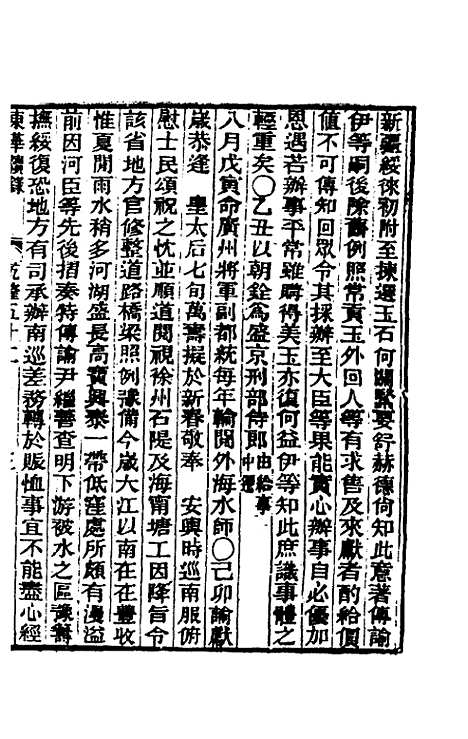 新疆綏徠初附至揀選玉石何關緊要舒赫德尙知此意著傳諭
伊等嗣後除舊例照常貢玉外回人等有求售及來獻者酌給價
值不可傳知回眾令其採辦至大臣等果能實心辦事自必優加
恩遇若辦事平常雖購得美玉亦復何益伊等知此庶識事體之
輕重矣〇乙丑以朝銓爲盛京刑部侍郎由給事中遷
八月戊寅命廣州將軍副都統每年輪閱外海水師〇己卯諭獻
歲恭逢 皇太后七旬萬壽擬於新春敬奉 安輿時巡南服俯
慰士民頌祝之忱並順道閱視徐州石隄及海甯塘工因降旨令
該省地方官修整道路橋梁照例豫備今歲大江以南在在豐收
惟夏閒雨水稍多河湖盛長高寶興泰一帶低窪處所頗有漫溢
前因河臣等先後摺奏特傳諭尹繼善查明下游被水之區豫籌
撫綏復恐地方有司承辦南巡差務轉於賑恤事宜不能盡心經
東華續錄 乾隆五十二